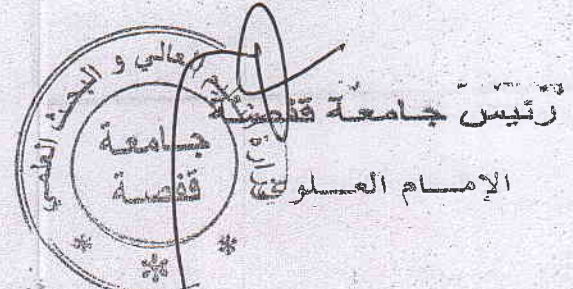 رئيس جامعة قفصة
الإمام العلوي
العالي و البحث العلمي
جامعة
قفصة